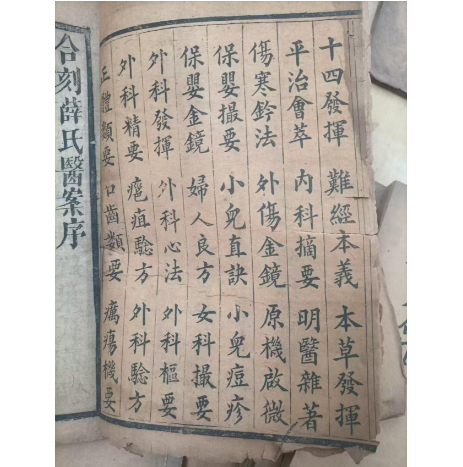 十四發揮 難經本義 本草發揮
平治會萃 內科摘要 明醫雜著
傷寒鈐法 外傷金鏡 原機啟微
保嬰撮要 小兒直訣 小兒痘疹
保嬰金鏡 婦人良方 女科撮要
外科發揮 外科心法 外科樞要
外科精要 癰疽騐方 外科騐方
正體類要 口齒類要 癘瘍機要
合刻薛氏醫案序